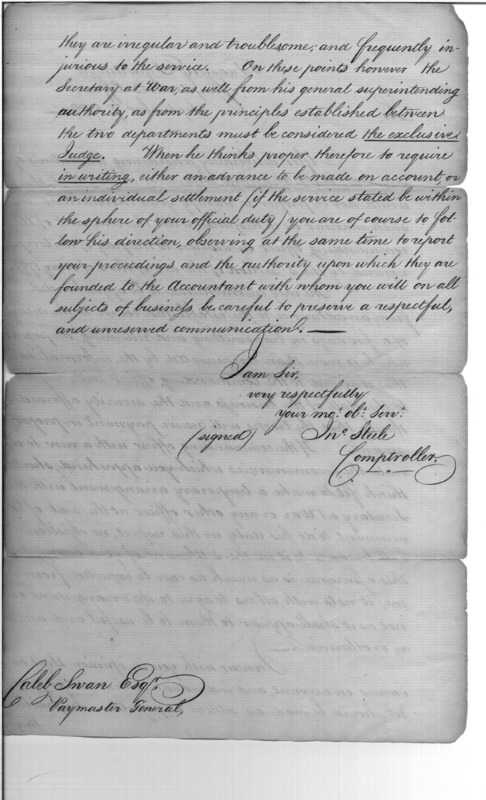 they are irregular and troublesome; and frequently in-
jurious to the service. On these points however the
Secretary at War, as well from his general superintending
authority, as from the principles established between
the two departments must be considered the exclusive
Judge. When he thinks proper therefore to require
in writing, either an advance to be made on account, or
an individual settlement (if the service stated be within
the sphere of your official duty) you are of course to fol-
low his direction, observing at the same time to report
your proceedings and the authority upon which they are
founded to the Accountant with whom you will on all
subjects of business be careful to preserve a respectful,
and unreserved communication. —
I am Sir,
very respectfully
your mo. ob. Serv.
(signed) Jno. Steele
Comptroller.
Caleb Swan Esqr.
Paymaster General,